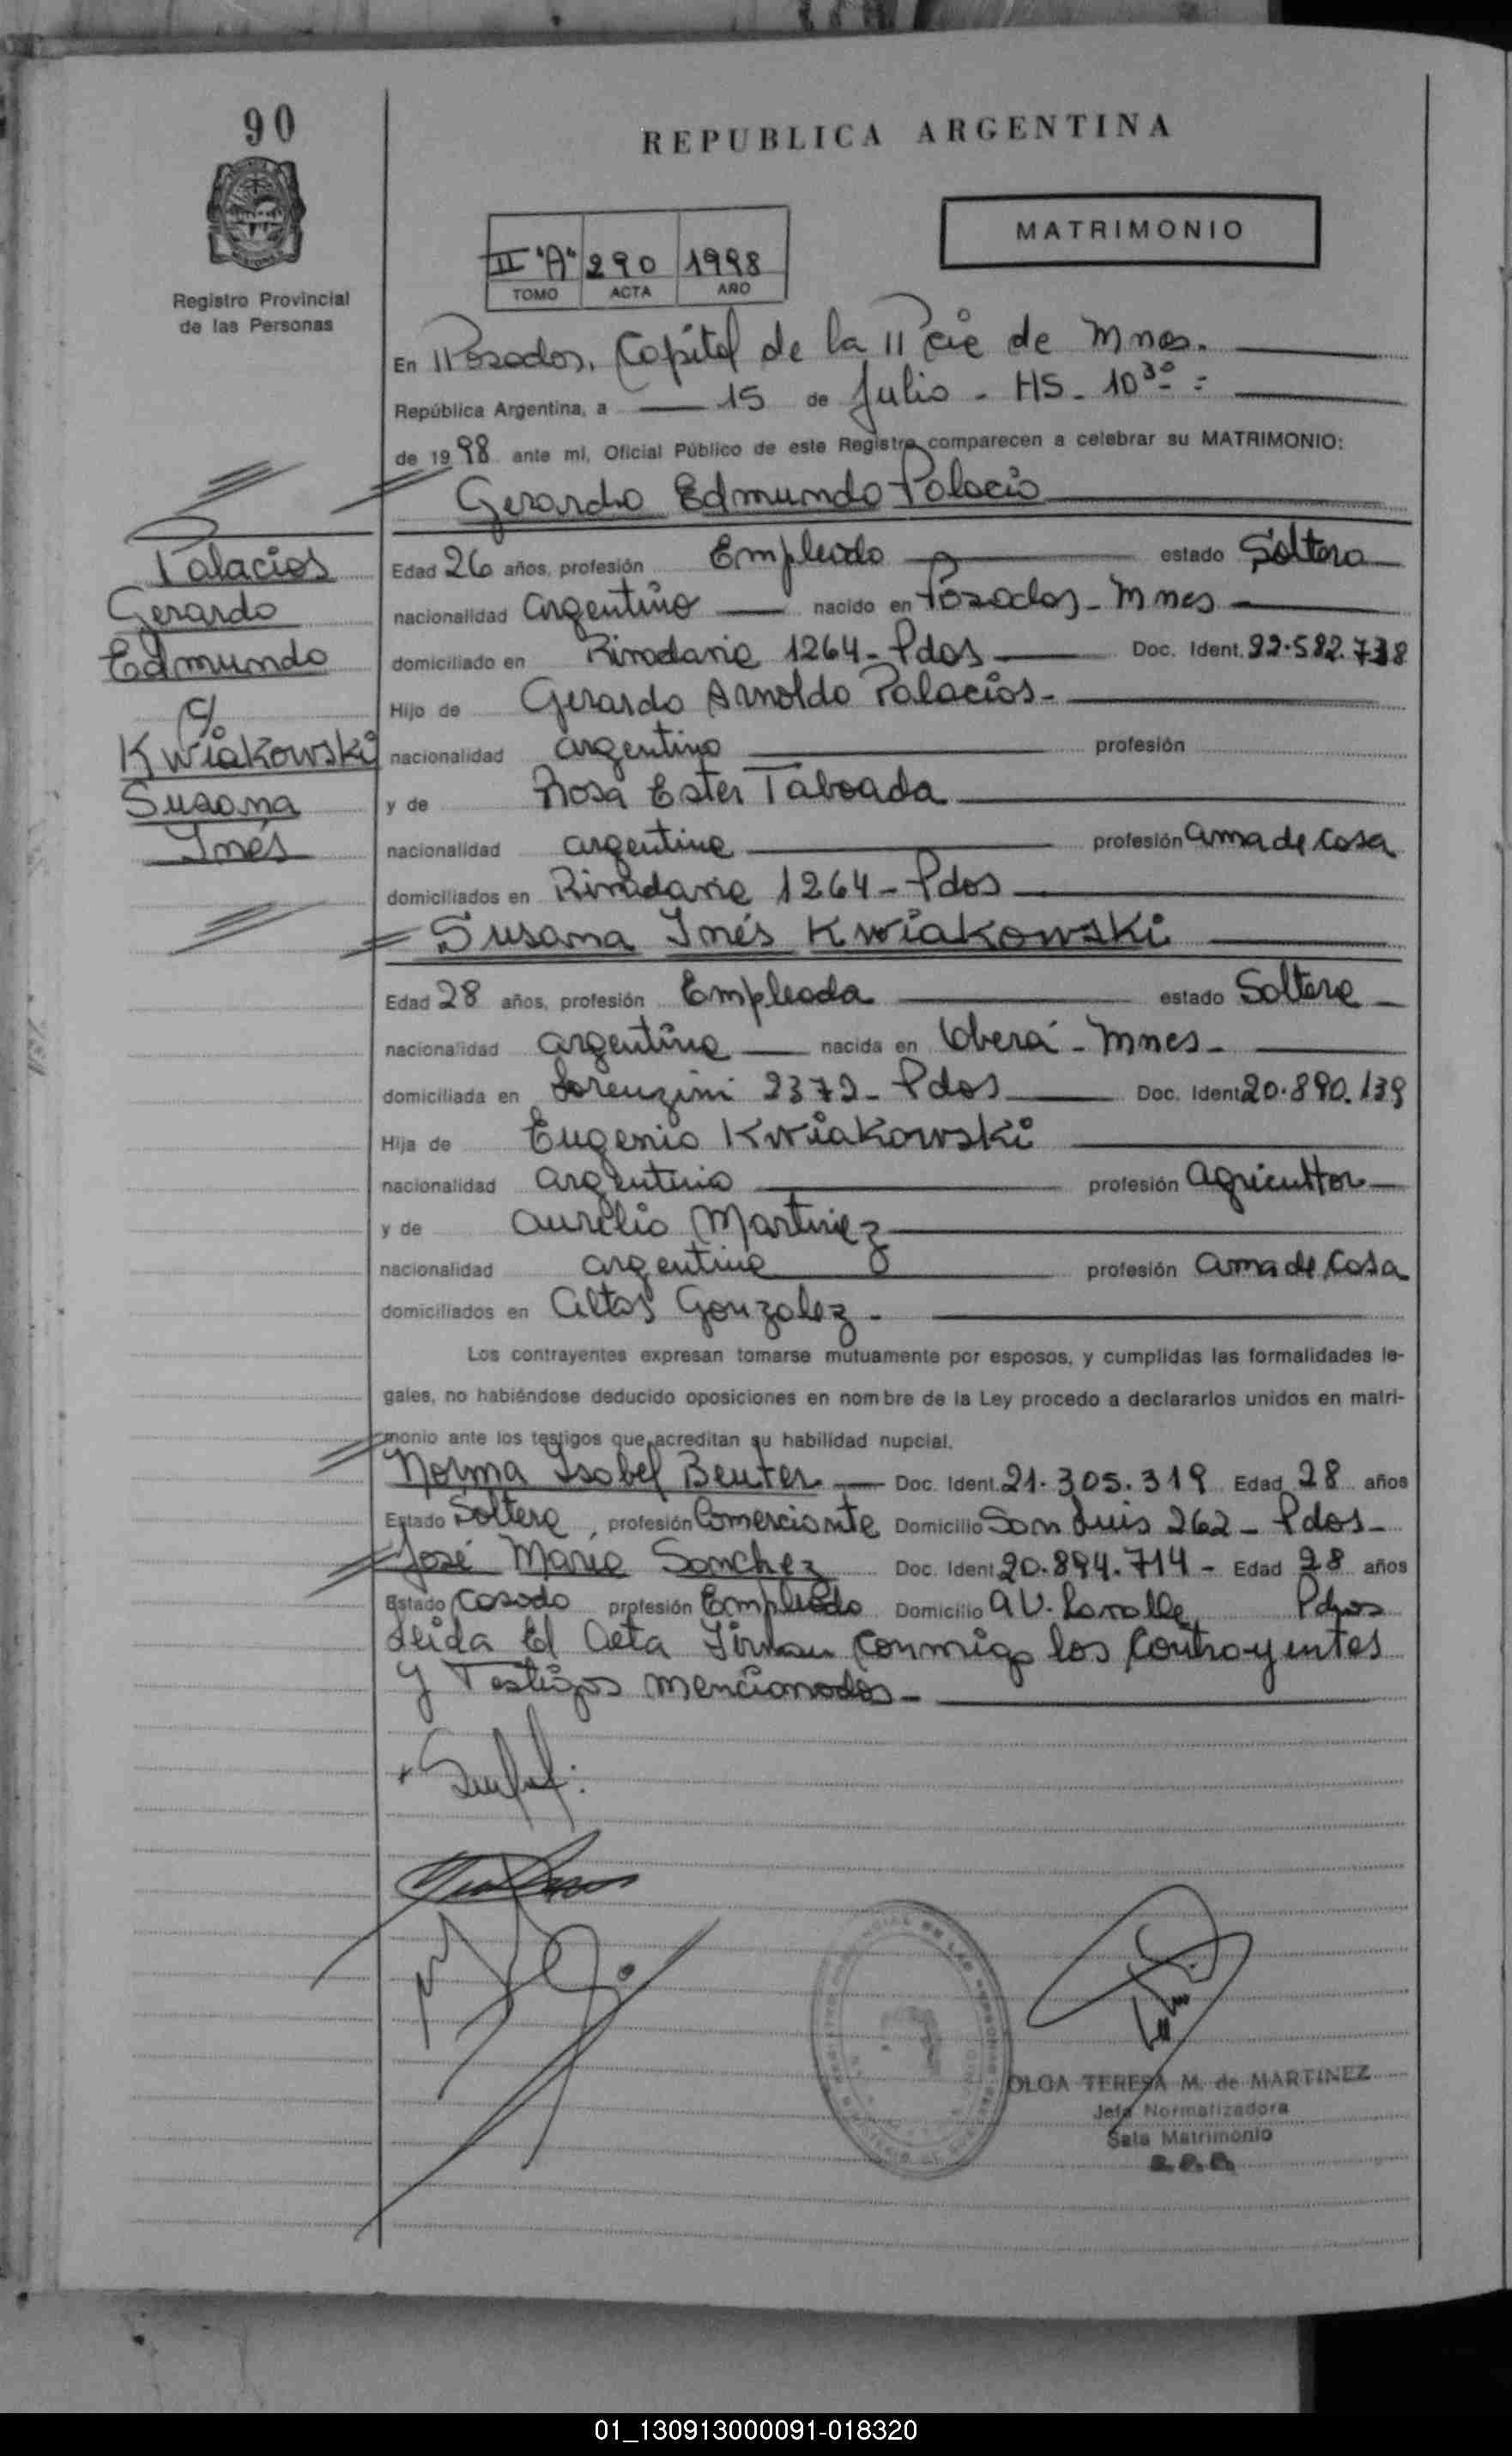 90
REPUBLICA ARGENTINA
MATRIMONIO
II "A" 290 1998
TOMO ACTA AÑO
Registro Provincial
de las Personas
En Posadas, Capital de la Pcia de Mnes.
República Argentina, a 15 de Julio - HS - 10 30 =
de 1998 ante mi, Oficial Público de este Registro comparecen a celebrar su MATRIMONIO:
Gerardo Edmundo Palacio
Palacios
Gerardo
Edmundo
c/
Kwiakowski
Susana
Inés
Edad 26 años, profesión Empleado estado Soltero
nacionalidad argentino nacido en Posadas - Mnes
domiciliado en Rivadavia 1264 - Pdas Doc. Ident. 22.582.738
Hijo de Gerardo Arnoldo Palacios -
nacionalidad argentino profesión
y de Rosa Ester Taboada
nacionalidad argentina profesión ama de casa
domiciliados en Rivadavia 1264 - Pdas
Susana Inés Kwiakowski
Edad 28 años, profesión Empleada estado Soltera
nacionalidad argentina nacida en Oberá - Mnes -
domiciliada en Lorenzini 2372 - Pdas Doc. Ident 20.890.139
Hija de Eugenio Kwiakowski
nacionalidad argentino profesión agricultor
y de Aurelia Martinez
nacionalidad argentina profesión ama de casa
domiciliados en Gonzalez -
Los contrayentes expresan tomarse mutuamente por esposos, y cumplidas las formalidades le-
gales, no habiéndose deducido oposiciones en nombre de la Ley procedo a declararlos unidos en matri-
monio ante los testigos que acreditan su habilidad nupcial.
Norma Isabel Beuter Doc. Ident. 21.305.319 Edad 28 años
Estado Soltera, profesión Comerciante Domicilio San Luis 262 - Pdas -
José Maria Sanchez Doc. Ident 20.894.714 - Edad 28 años
Estado Casado profesión Empleado Domicilio AV. Lavalle Pdas
Leida El Acta Firman conmigo los Contrayentes
y Testigos mencionados -
OLGA TERESA M. de MARTINEZ
Jefa Normatizadora
Sala Matrimonio
01_130913000091-018320